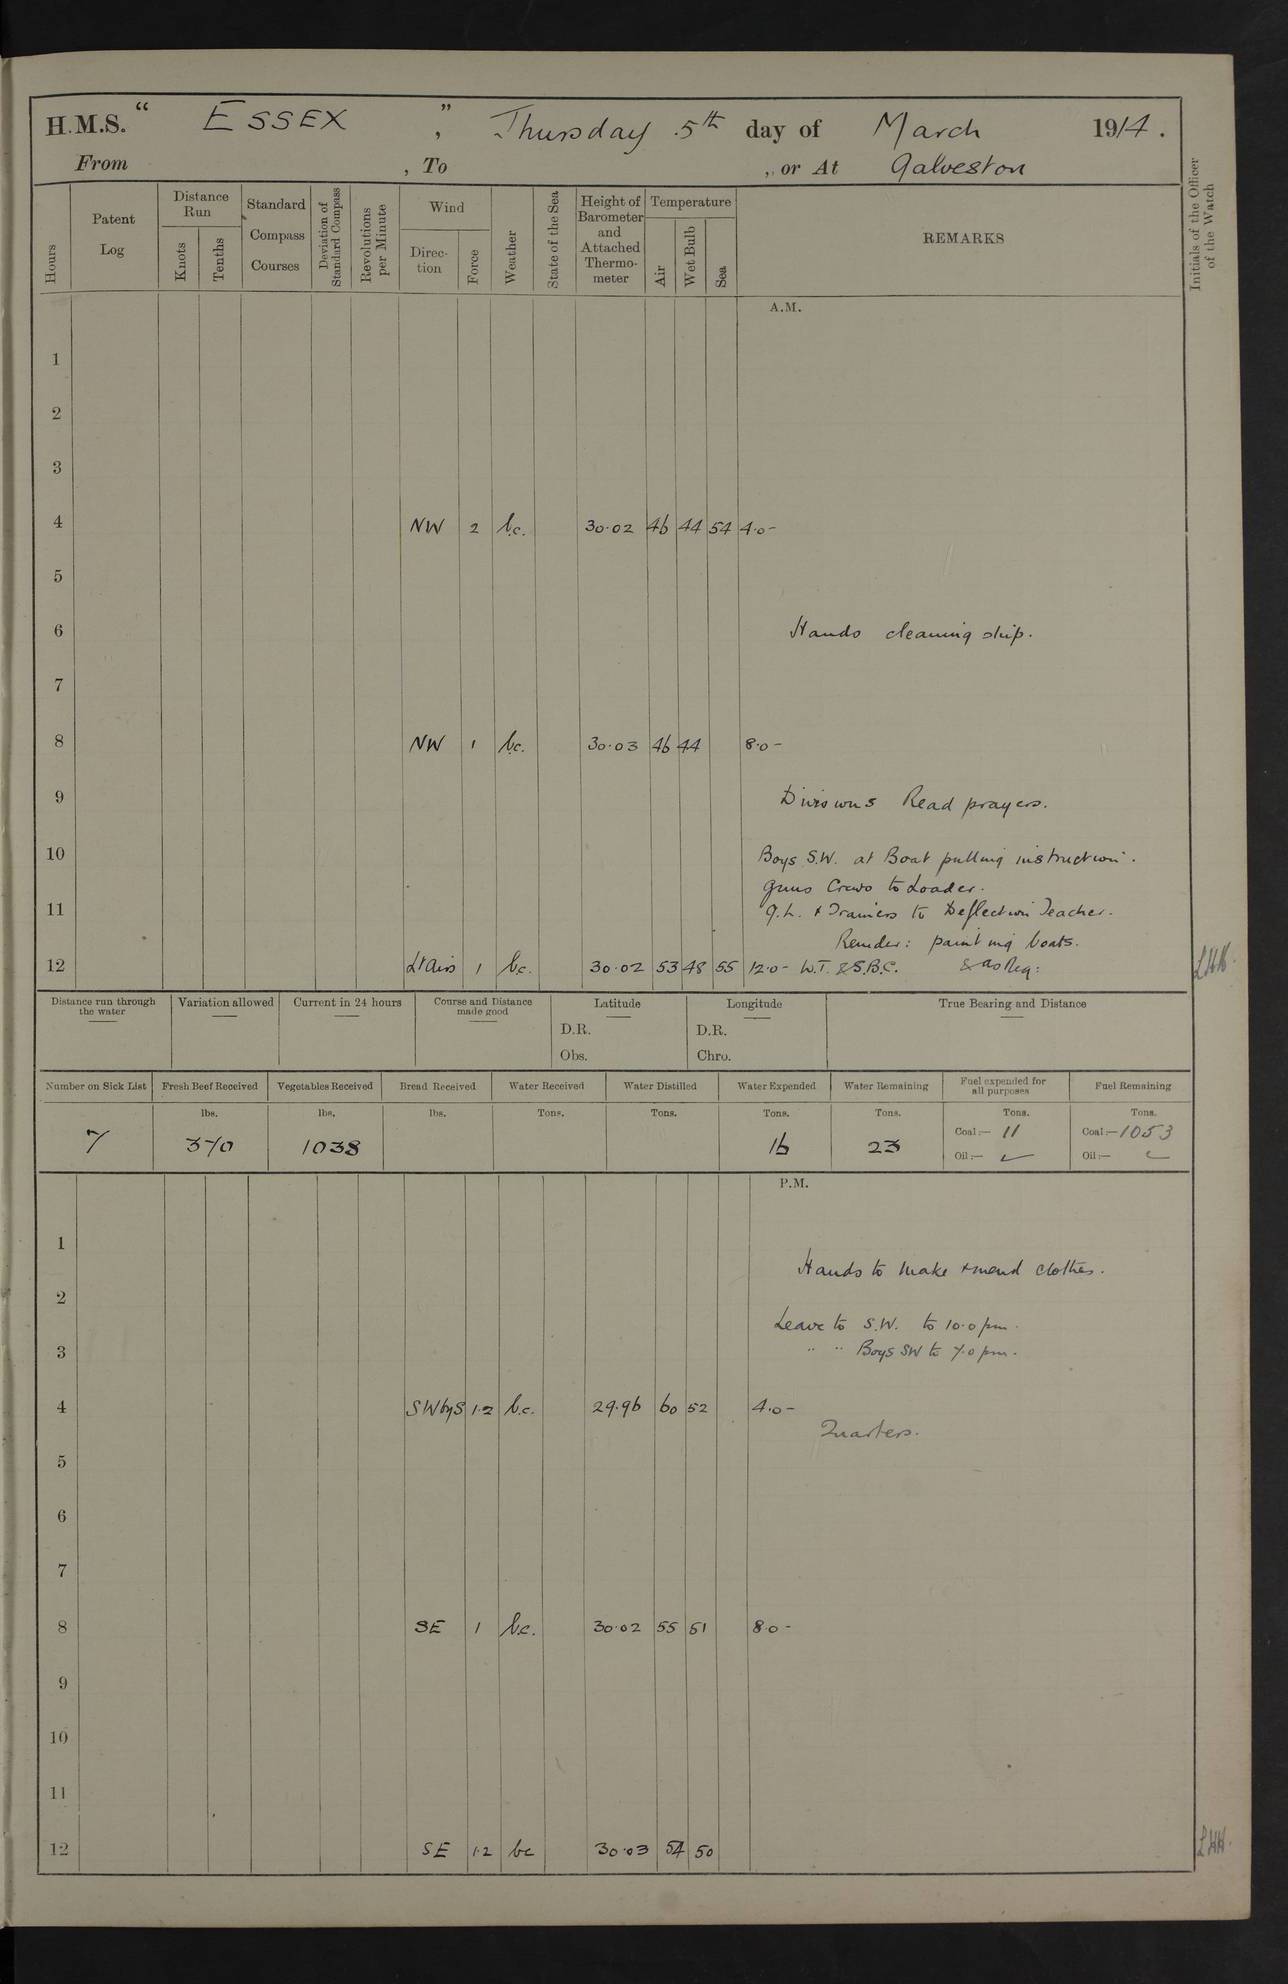 H.M.S. " ESSEX ", Thursday 5th day of March 1914.
From , To , or At Galveston
Hours
Patent Log
Distance Run
Knots
Tenths
Standard Compass Courses
Deviation of Standard Compass
Revolutions per Minute
Wind
Direc-tion
Force
Weather
State of the Sea
Height of Barometer and Attached Thermo-meter
Temperature
Air
Wet Bulb
Sea
REMARKS
Initials of the Officer of the Watch
A.M.
1
2
3
4 NW 2 b.c. 30.02 46 44 54 4.0-
5
6 Hands cleaning ship.
7
8 NW 1 b.c. 30.03 46 44 8.0-
9 Divisions Read prayers.
10 Boys S.W. at Boat pulling instruction.
Guns Crews to Loader.
11 G.L. & Trainers to Deflection Teacher.
Remder: painting boats.
12 Lt Airs 1 b.c. 30.02 53 48 55 12.0- W.T. & S.B.C. & as Req: LHH.
Distance run through the water
Variation allowed
Current in 24 hours
Course and Distance made good
Latitude
D.R.
Obs.
Longitude
D.R.
Chro.
True Bearing and Distance
Number on Sick List
Fresh Beef Received
Vegetables Received
Bread Received
Water Received
Water Distilled
Water Expended
Water Remaining
Fuel expended for all purposes
Fuel Remaining
lbs. lbs. lbs. Tons. Tons. Tons. Tons. Tons. Tons.
7 370 1038 16 23 Coal:— 11 Coal:—1053
Oil:— Oil:—
P.M.
1
Hands to make & mend clothes.
2
Leave to S.W. to 10.0 pm.
3 " " Boys SW to 7.0 pm.
4 SWbyS 1.2 b.c. 29.96 60 52 4.0-
Quarters.
5
6
7
8 SE 1 b.c. 30.02 55 51 8.0-
9
10
11
12 SE 1.2 bc 30.03 54 50 LHH.